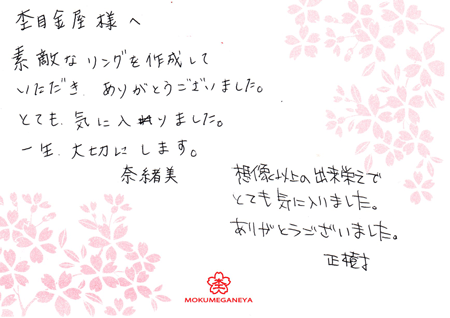 杢目金屋様へ
素敵なリングを作成して
いただき、ありがとうございました。
とても、気に入りました。
一生、大切にします。
奈緒美
想像以上の出来栄えで
とても気に入りました。
ありがとうございました。
正樹
MOKUMEGANEYA